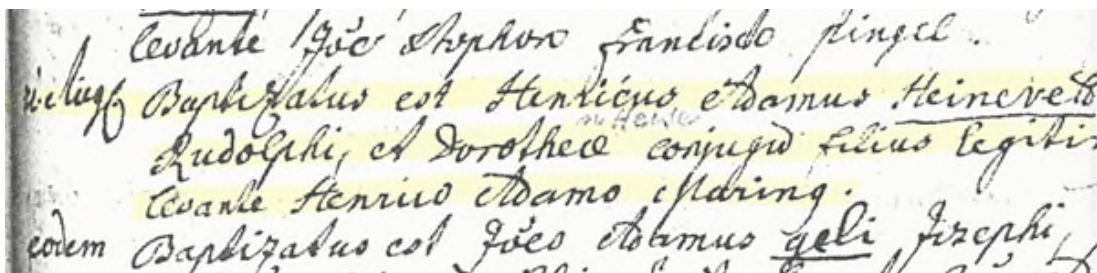 levante Jöe Stephan Francisco pingel.
Baptizatus est Henricus Adamus Heinevett
Rudolphi, et Dorotheæ conjugū filius legiti
levante Henrico Adamo Maring.
eodem Baptizatus est Jöes Adamus geli Jozephi,